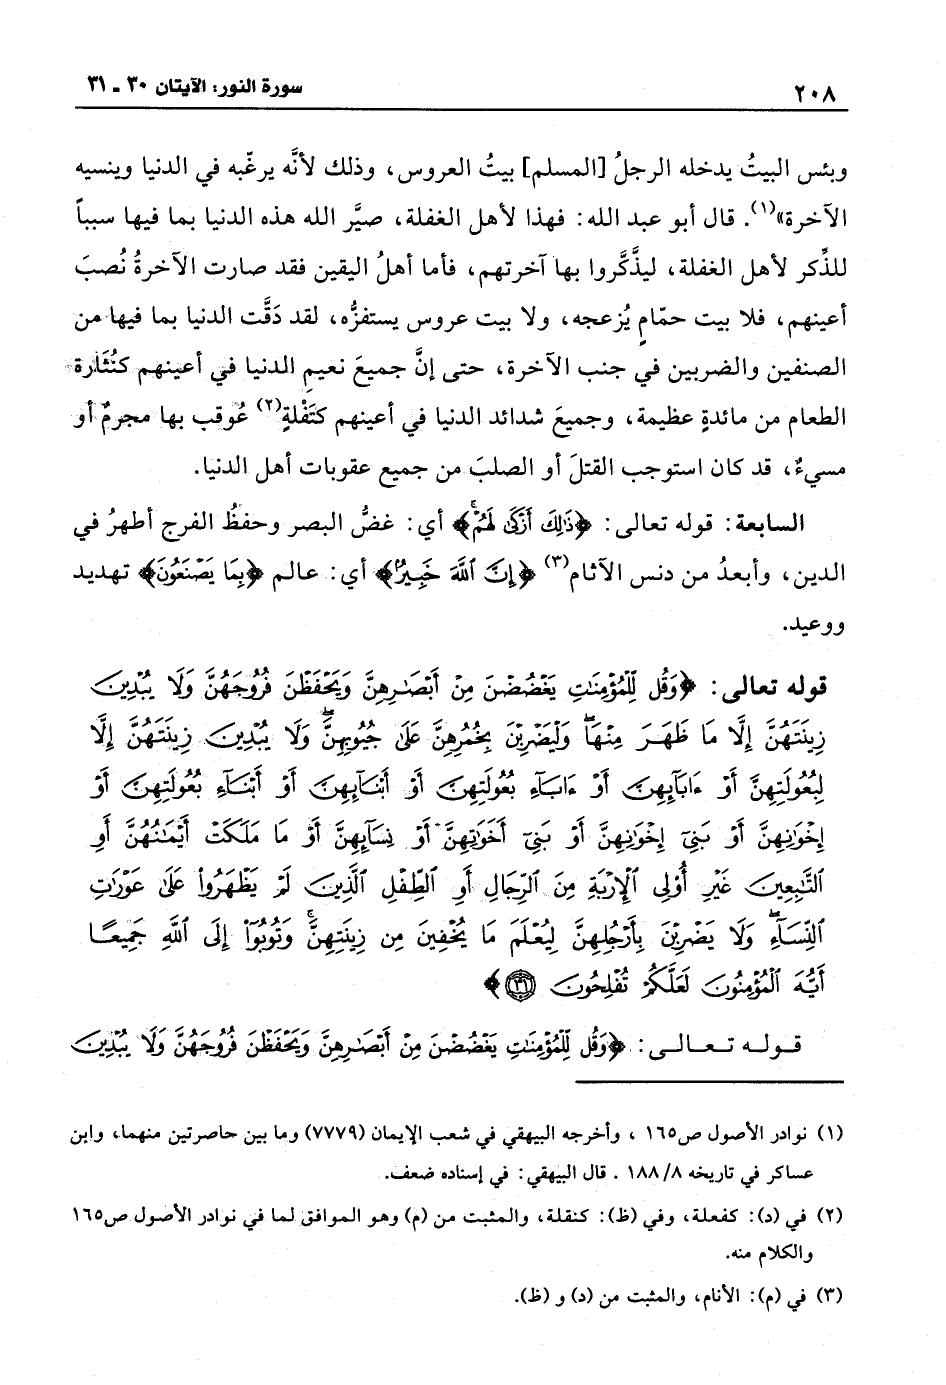 ٢٠٨ سورة النور: الآيتان ٣٠ ـ ٣١
وبئس البيتُ يدخله الرجلُ [المسلم] بيتُ العروس، وذلك لأنَّه يرغّبه في الدنيا وينسيه
الآخرة»(١). قال أبو عبد الله: فهذا لأهل الغفلة، صيَّر الله هذه الدنيا بما فيها سبباً
للذِّكر لأهل الغفلة، ليذَّكَّروا بها آخرتهم، فأما أهلُ اليقين فقد صارت الآخرةُ نُصبَ
أعينهم، فلا بيت حمّامٍ يُزعجه، ولا بيت عروس يستفزُّه، لقد دَقَّت الدنيا بما فيها من
الصنفين والضربين في جنب الآخرة، حتى إنَّ جميعَ نعيمِ الدنيا في أعينهم كنُثَارة
الطعام من مائدةٍ عظيمة، وجميعَ شدائد الدنيا في أعينهم كتَفْلةٍ(٢) عُوقب بها مجرمٌ أو
مسيءٌ، قد كان استوجب القتلَ أو الصلبَ من جميع عقوبات أهل الدنيا.
السابعة: قوله تعالى: ﴿ذَٰلِكَ أَزْكَىٰ لَهُمْ﴾ أي: غضُّ البصر وحفظُ الفرج أطهرُ في
الدين، وأبعدُ من دنس الآثام(٣) ﴿إِنَّ ٱللَّهَ خَبِيرٌ﴾ أي: عالم ﴿بِمَا يَصْنَعُونَ﴾ تهديد
ووعيد.
قوله تعالى: ﴿وَقُل لِّلْمُؤْمِنَٰتِ يَغْضُضْنَ مِنْ أَبْصَٰرِهِنَّ وَيَحْفَظْنَ فُرُوجَهُنَّ وَلَا يُبْدِينَ
زِينَتَهُنَّ إِلَّا مَا ظَهَرَ مِنْهَاۖ وَلْيَضْرِبْنَ بِخُمُرِهِنَّ عَلَىٰ جُيُوبِهِنَّۖ وَلَا يُبْدِينَ زِينَتَهُنَّ إِلَّا
لِبُعُولَتِهِنَّ أَوْ ءَابَآئِهِنَّ أَوْ ءَابَآءِ بُعُولَتِهِنَّ أَوْ أَبْنَآئِهِنَّ أَوْ أَبْنَآءِ بُعُولَتِهِنَّ أَوْ
إِخْوَٰنِهِنَّ أَوْ بَنِىٓ إِخْوَٰنِهِنَّ أَوْ بَنِىٓ أَخَوَٰتِهِنَّ أَوْ نِسَآئِهِنَّ أَوْ مَا مَلَكَتْ أَيْمَٰنُهُنَّ أَوِ
ٱلتَّٰبِعِينَ غَيْرِ أُو۟لِى ٱلْإِرْبَةِ مِنَ ٱلرِّجَالِ أَوِ ٱلطِّفْلِ ٱلَّذِينَ لَمْ يَظْهَرُوا۟ عَلَىٰ عَوْرَٰتِ
ٱلنِّسَآءِۖ وَلَا يَضْرِبْنَ بِأَرْجُلِهِنَّ لِيُعْلَمَ مَا يُخْفِينَ مِن زِينَتِهِنَّۚ وَتُوبُوٓا۟ إِلَى ٱللَّهِ جَمِيعًا
أَيُّهَ ٱلْمُؤْمِنُونَ لَعَلَّكُمْ تُفْلِحُونَ ۝٣١﴾
قوله تعالى: ﴿وَقُل لِّلْمُؤْمِنَٰتِ يَغْضُضْنَ مِنْ أَبْصَٰرِهِنَّ وَيَحْفَظْنَ فُرُوجَهُنَّ وَلَا يُبْدِينَ
(١) نوادر الأصول ص١٦٥ ، وأخرجه البيهقي في شعب الإيمان (٧٧٧٩) وما بين حاصرتين منهما، وابن
عساكر في تاريخه ٨/ ١٨٨ . قال البيهقي: في إسناده ضعف.
(٢) في (د): كفعلة، وفي (ظ): كنقلة، والمثبت من (م) وهو الموافق لما في نوادر الأصول ص١٦٥
والكلام منه.
(٣) في (م): الأنام، والمثبت من (د) و (ظ).